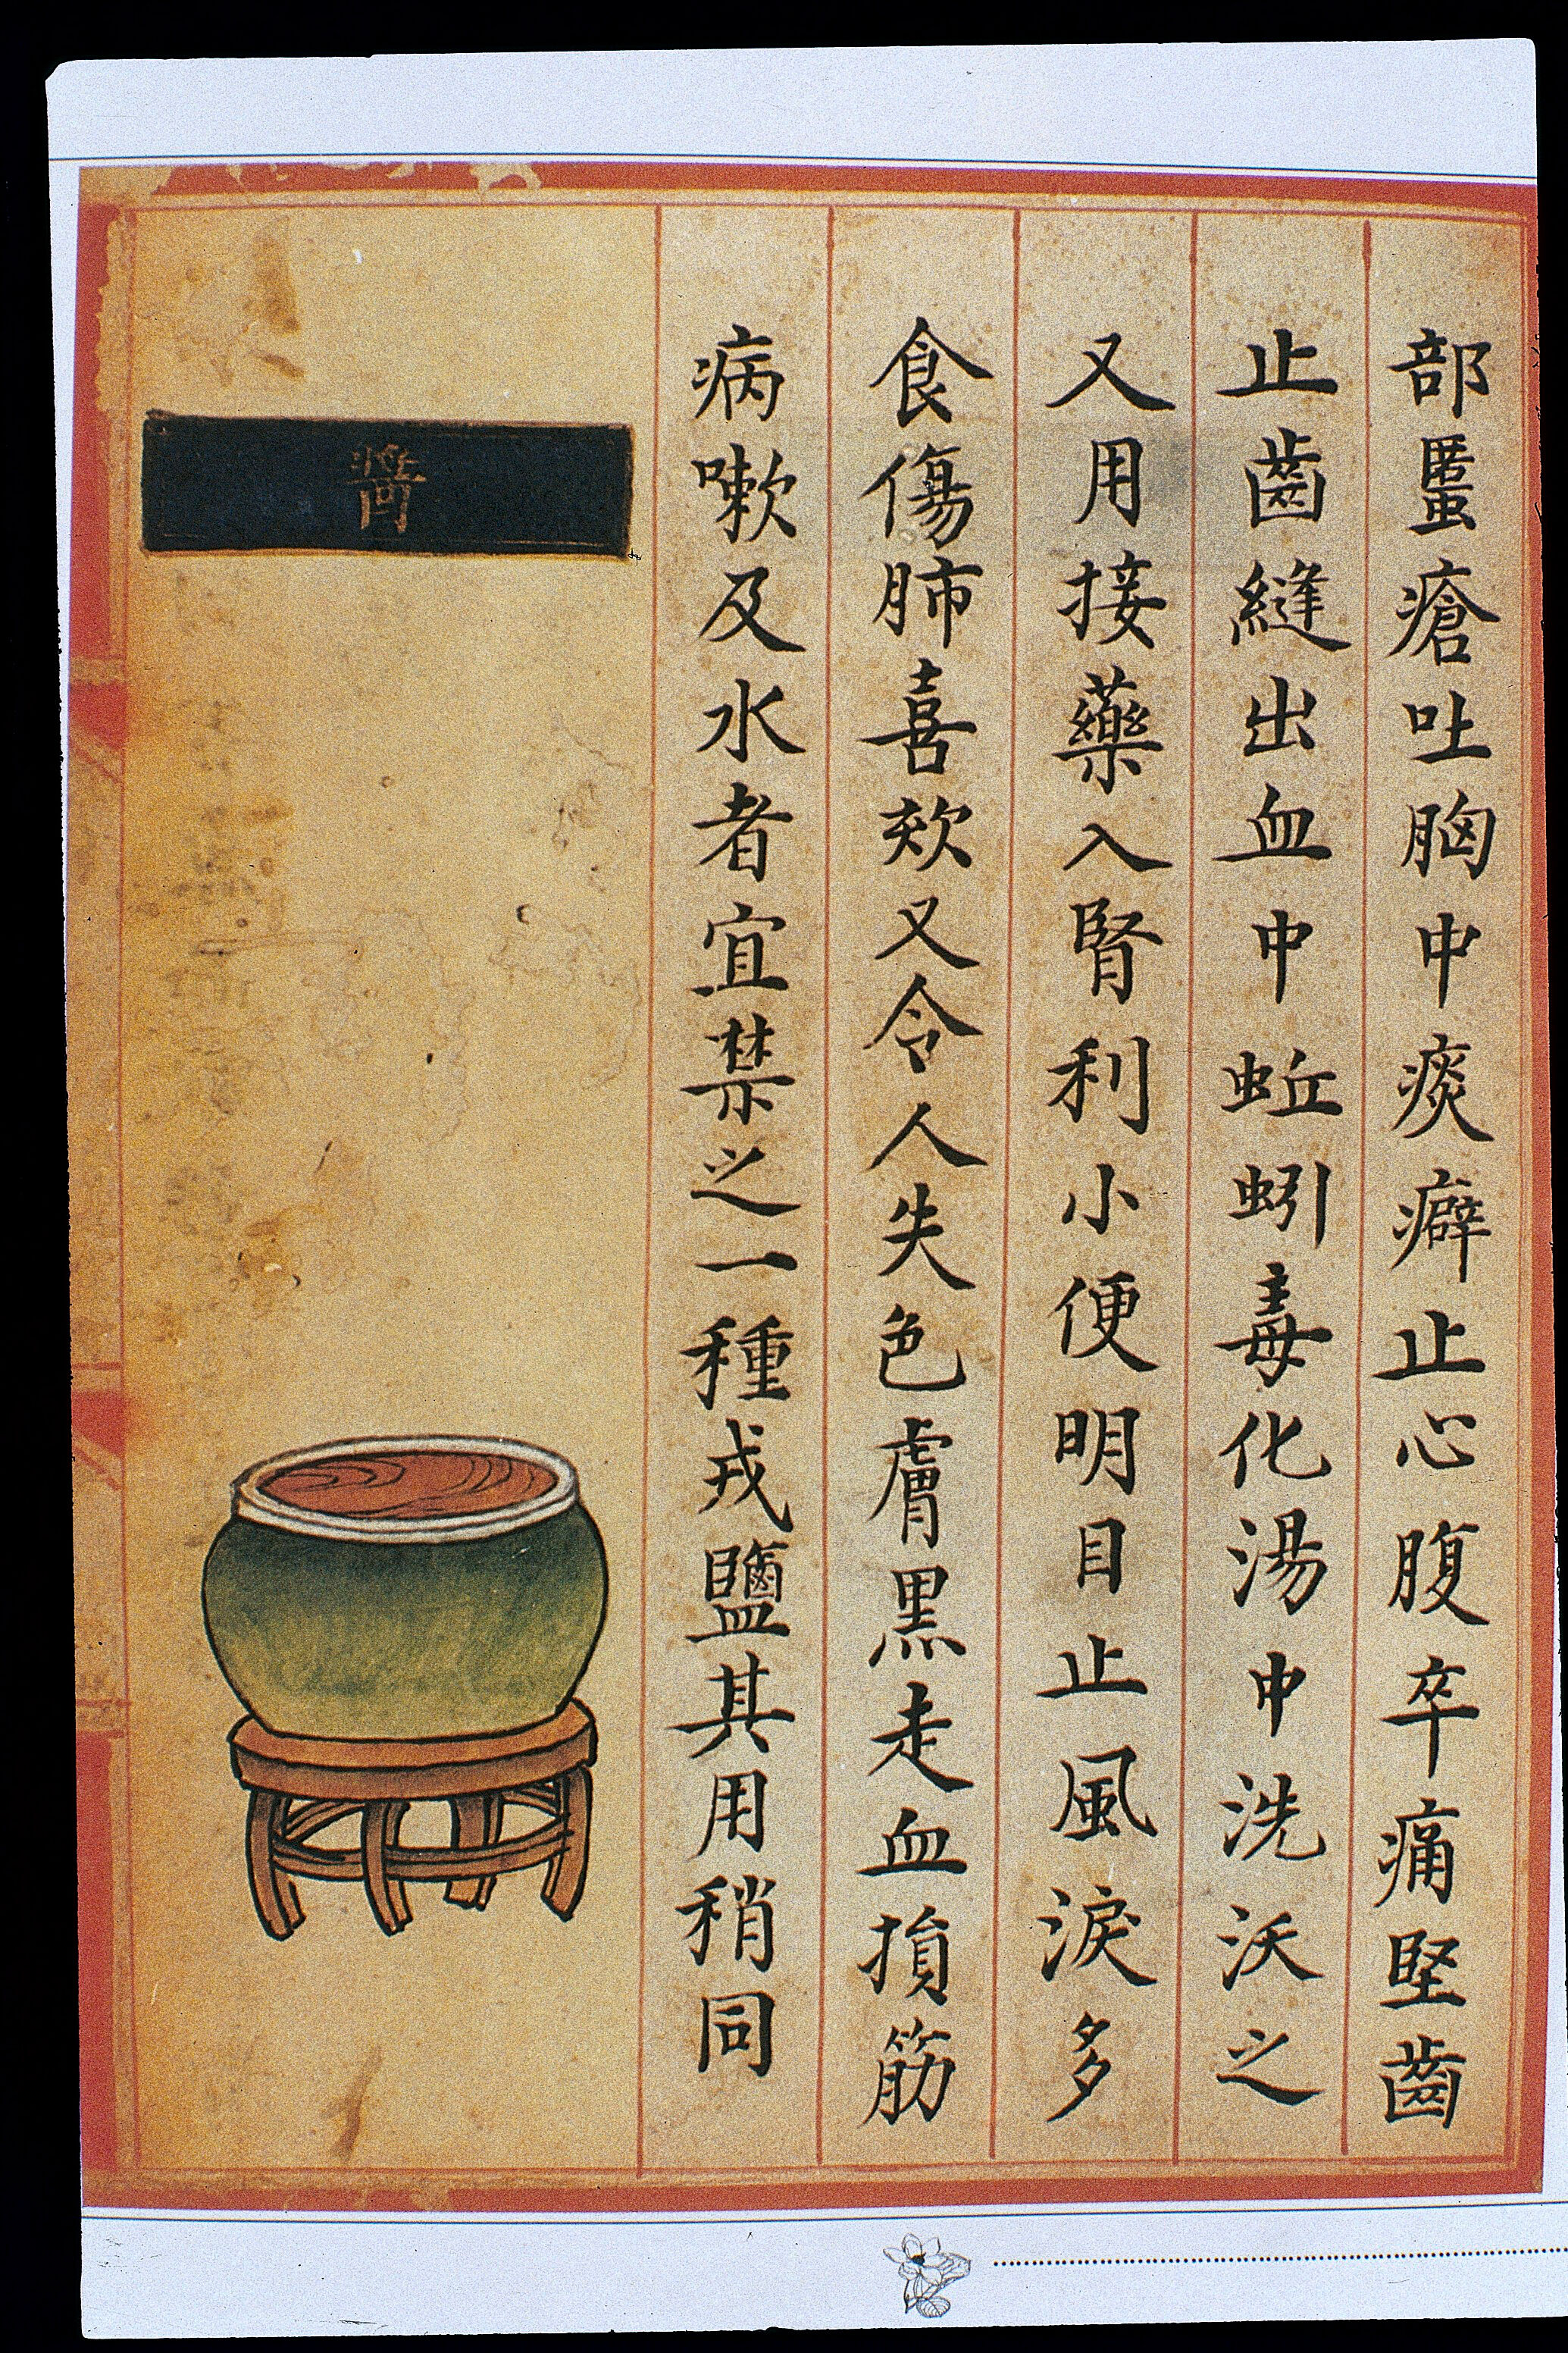 部䘌瘡吐胸中痰癖止心腹卒痛堅齒
止齒縫出血中蚯蚓毒化湯中洗沃之
又用接藥入腎利小便明目止風淚多
食傷肺喜欬又令人失色膚黑走血損筋
病嗽及水者宜禁之一種戎鹽其用稍同
醬